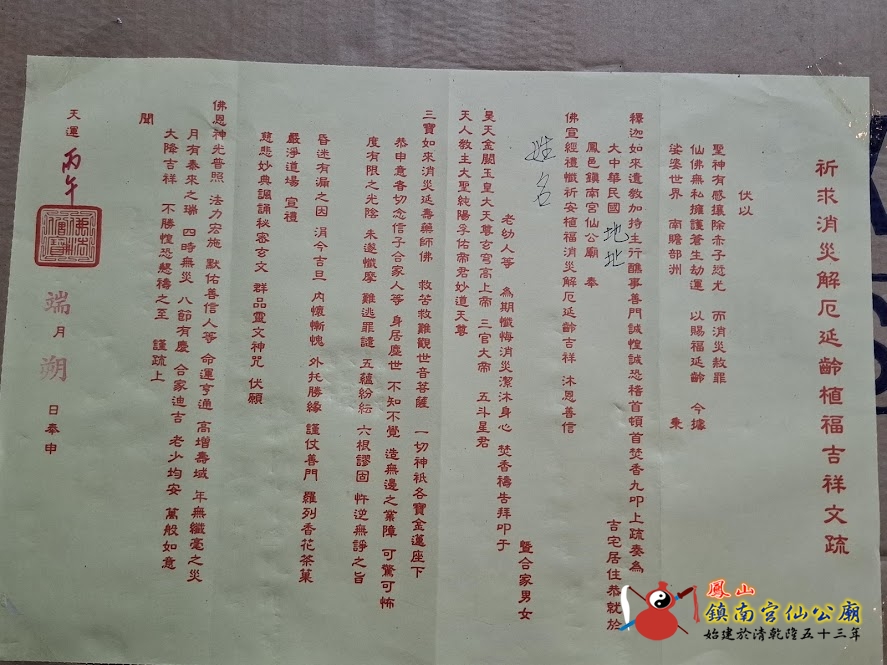 祈求消災解厄延齡植福吉祥文疏
伏以
聖神有感攘除赤子愆尤　而消災赦罪
仙佛無私擁護蒼生劫運　以賜福延齡　今據
娑婆世界　南贍部洲　　秉
釋迦如來遺教加持主行醮事善門誠惶誠恐稽首頓首焚香九叩上疏奏為
大中華民國　地址　吉宅居住恭就於
鳳邑鎮南宮仙公廟　奉
佛宣經禮懺祈安植福消災解厄延齡吉祥　沐恩善信
姓名　暨合家男女
老幼人等　為期懺悔消災潔沐身心　焚香禱告拜叩于
昊天金闕玉皇大天尊玄穹高上帝　三官大帝　五斗星君
天人教主大聖純陽孚佑帝君妙道天尊
三寶如來消災延壽藥師佛　救苦救難觀世音菩薩　一切神祇各寶金蓮座下
恭申意者切念信子合家人等　身居塵世　不知不覺　造無邊之業障　可驚可怖
度有限之光陰　未遂懺摩　難逃罪譴　五蘊紛紜　六根謬固　忤逆無諍之旨
昏迷有漏之因　涓今吉旦　內懷慚愧　外托勝緣　謹仗善門　羅列香花茶菓
嚴淨道場　宣禮
慈悲妙典諷誦秘密玄文　群品靈文神咒　伏願
佛恩神光普照　法力宏施　默佑善信人等　命運亨通　高增壽域　年無纖毫之災
月有泰來之瑞　四時無災　八節有慶　合家迪吉　老少均安　萬般如意
大降吉祥　不勝惶恐懇禱之至　謹疏上
聞
天運　丙午　端月　朔　日奉申
佛法僧寶
鳳山
鎮南宮仙公廟
始建於清乾隆五十三年